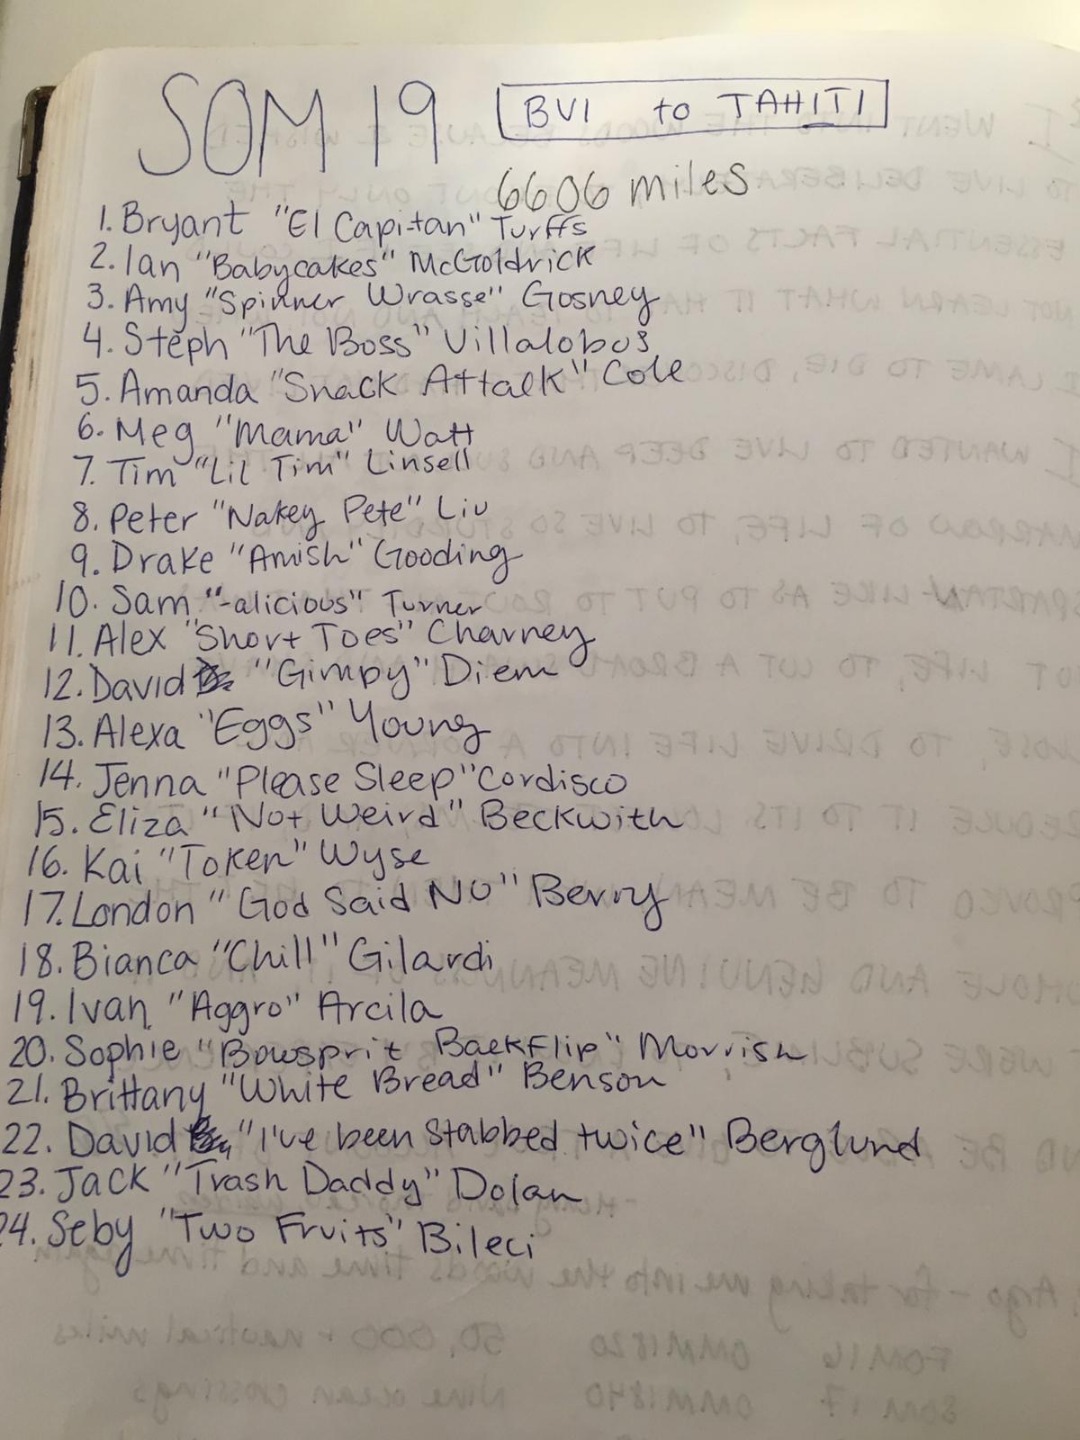 SOM 19
BVI to TAHITI
6606 miles
1. Bryant "El Capi-tan" Turffs
2. Ian "Babycakes" McGoldrick
3. Amy "Spinner Wrasse" Gosney
4. Steph "The Boss" Villalobos
5. Amanda "Snack Attalk" Cole
6. Meg "Mama" Watt
7. Tim "Lil Tim" Linsell
8. Peter "Nakey Pete" Liu
9. Drake "Amish" Gooding
10. Sam "-alicious" Turner
11. Alex "Short Toes" Charney
12. David "Gimpy" Diem
13. Alexa "Eggs" Young
14. Jenna "Please Sleep" Cordisco
15. Eliza "Not Weird" Beckwith
16. Kai "Token" Wyse
17. London "God Said NO" Berry
18. Bianca "Chill" Gilardi
19. Ivan "Aggro" Arcila
20. Sophie "Bowsprit Backflip" Morrish
21. Brittany "White Bread" Benson
22. David "I've been stabbed twice" Berglund
23. Jack "Trash Daddy" Dolan
24. Seby "Two Fruits" Bileci